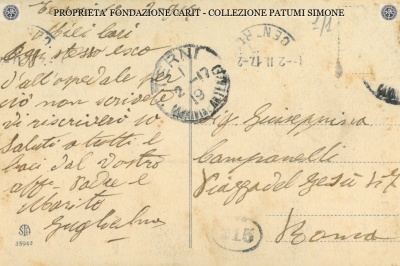 PROPRIETÀ FONDAZIONE CARIT - COLLEZIONE PATUMI SIMONE
Miei cari
Oggi stesso esco
dall'ospedale per
ciò non scrivete
vi riscriverò io
Saluti a tutti e
baci dal vostro
aff. Padre e
Marito
Guglielmo
TERNI
2 17
19
CENTRO
2.II.17
Giuseppina
Campanelli
Piazza del Gesù 47
Roma
215
STA
35942